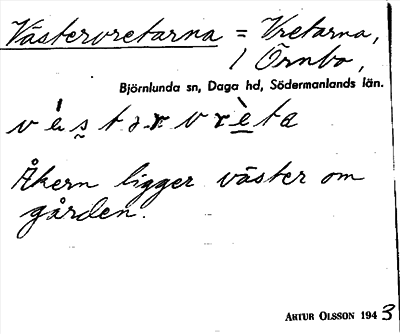 Västervretarna = Vretarna,
1 Örnbo,
Björnlunda sn, Daga hd, Södermanlands län.
Åkern ligger väster om
gården.
ARTUR OLSSON 1943